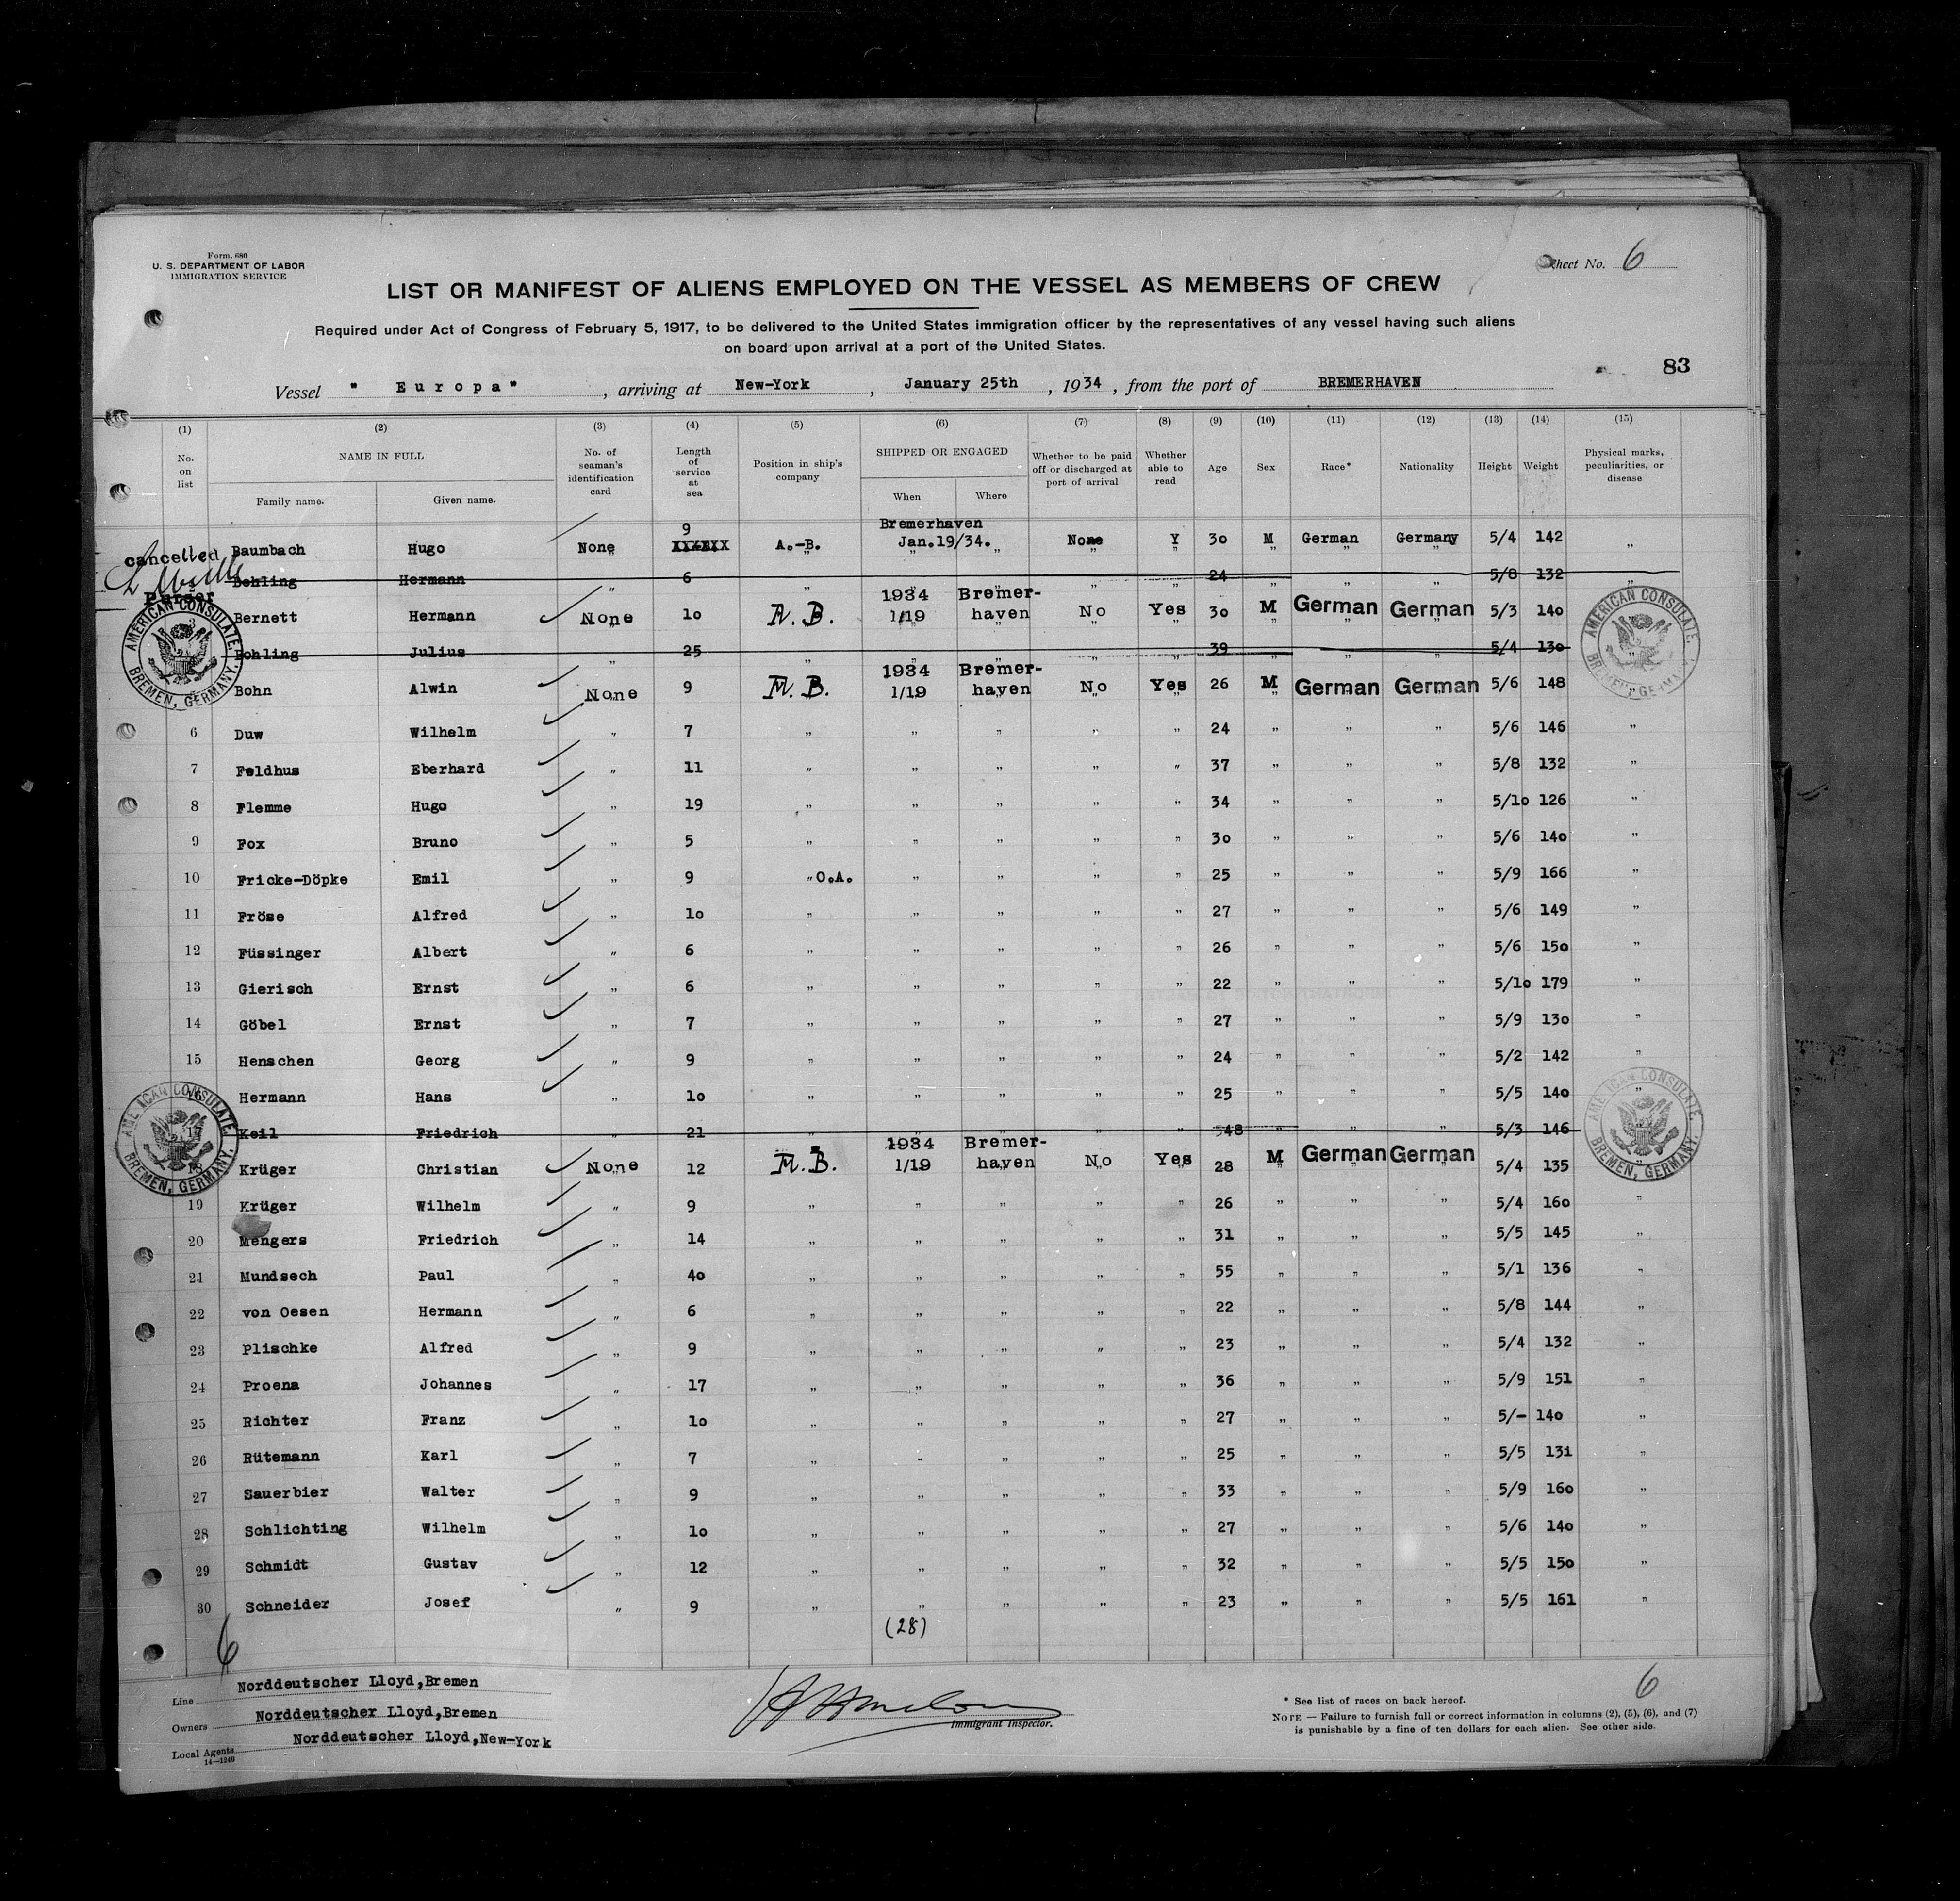 Form. 680
U. S. DEPARTMENT OF LABOR
IMMIGRATION SERVICE
Sheet No. 6
LIST OR MANIFEST OF ALIENS EMPLOYED ON THE VESSEL AS MEMBERS OF CREW
Required under Act of Congress of February 5, 1917, to be delivered to the United States immigration officer by the representatives of any vessel having such aliens
on board upon arrival at a port of the United States.
83
Vessel " Europa" , arriving at New-York , January 25th , 1934 , from the port of BREMERHAVEN
(1) (2) (3) (4) (5) (6) (7) (8) (9) (10) (11) (12) (13) (14) (15)
No. on list NAME IN FULL Family name. Given name. No. of seaman's identification card Length of service at sea Position in ship's company SHIPPED OR ENGAGED When Where Whether to be paid off or discharged at port of arrival Whether able to read Age Sex Race* Nationality Height Weight Physical marks, peculiarities, or disease
9 Bremerhaven
cancelled Baumbach Hugo None A.-B. Jan.19/34. " None Y 30 M German Germany 5/4 142 "
Behling Hermann " 6 " " " " " 24 " " " 5/8 132 "
Purser
1934 Bremer-
3 Bernett Hermann None 10 A. B. 1/19 haven No Yes 30 M German German 5/3 140
Bohling Julius " 25 " " " " " 39 " " " 5/4 130 "
1934 Bremer-
Bohn Alwin None 9 M. B. 1/19 haven No Yes 26 M German German 5/6 148 "
AMERICAN CONSULATE. BREMEN, GERMANY.
AMERICAN CONSULATE. BREMEN, GERMANY.
6 Duw Wilhelm " 7 " " " " " 24 " " " 5/6 146 "
7 Feldhus Eberhard " 11 " " " " " 37 " " " 5/8 132 "
8 Flemme Hugo " 19 " " " " " 34 " " " 5/10 126 "
9 Fox Bruno " 5 " " " " " 30 " " " 5/6 140 "
10 Fricke-Döpke Emil " 9 "O.A. " " " " 25 " " " 5/9 166 "
11 Fröse Alfred " 10 " " " " " 27 " " " 5/6 149 "
12 Füssinger Albert " 6 " " " " " 26 " " " 5/6 150 "
13 Gierisch Ernst " 6 " " " " " 22 " " " 5/10 179 "
14 Göbel Ernst " 7 " " " " " 27 " " " 5/9 130 "
15 Henschen Georg " 9 " " " " " 24 " " " 5/2 142 "
16 Hermann Hans " 10 " " " " " 25 " " " 5/5 140 "
17 Keil Friedrich " 21 " " " " " 48 " " " 5/3 146
1934 Bremer-
18 Krüger Christian None 12 M. B. 1/19 haven No Yes 28 M German German 5/4 135
AMERICAN CONSULATE. BREMEN, GERMANY.
AMERICAN CONSULATE. BREMEN, GERMANY.
19 Krüger Wilhelm " 9 " " " " " 26 " " " 5/4 160 "
20 Mengers Friedrich " 14 " " " " " 31 " " " 5/5 145 "
21 Mundsech Paul " 40 " " " " " 55 " " " 5/1 136 "
22 von Oesen Hermann " 6 " " " " " 22 " " " 5/8 144 "
23 Plischke Alfred " 9 " " " " " 23 " " " 5/4 132 "
24 Proena Johannes " 17 " " " " " 36 " " " 5/9 151 "
25 Richter Franz " 10 " " " " " 27 " " " 5/- 140 "
26 Rütemann Karl " 7 " " " " " 25 " " " 5/5 131 "
27 Sauerbier Walter " 9 " " " " " 33 " " " 5/9 160 "
28 Schlichting Wilhelm " 10 " " " " " 27 " " " 5/6 140 "
29 Schmidt Gustav " 12 " " " " " 32 " " " 5/5 150 "
30 Schneider Josef " 9 " " " " " 23 " " " 5/5 161 "
(28)
6
Line Norddeutscher Lloyd,Bremen
Owners Norddeutscher Lloyd,Bremen
Local Agents Norddeutscher Lloyd,New-York
14—1240
Immigrant Inspector.
6
* See list of races on back hereof.
NOTE — Failure to furnish full or correct information in columns (2), (5), (6), and (7)
is punishable by a fine of ten dollars for each alien. See other side.